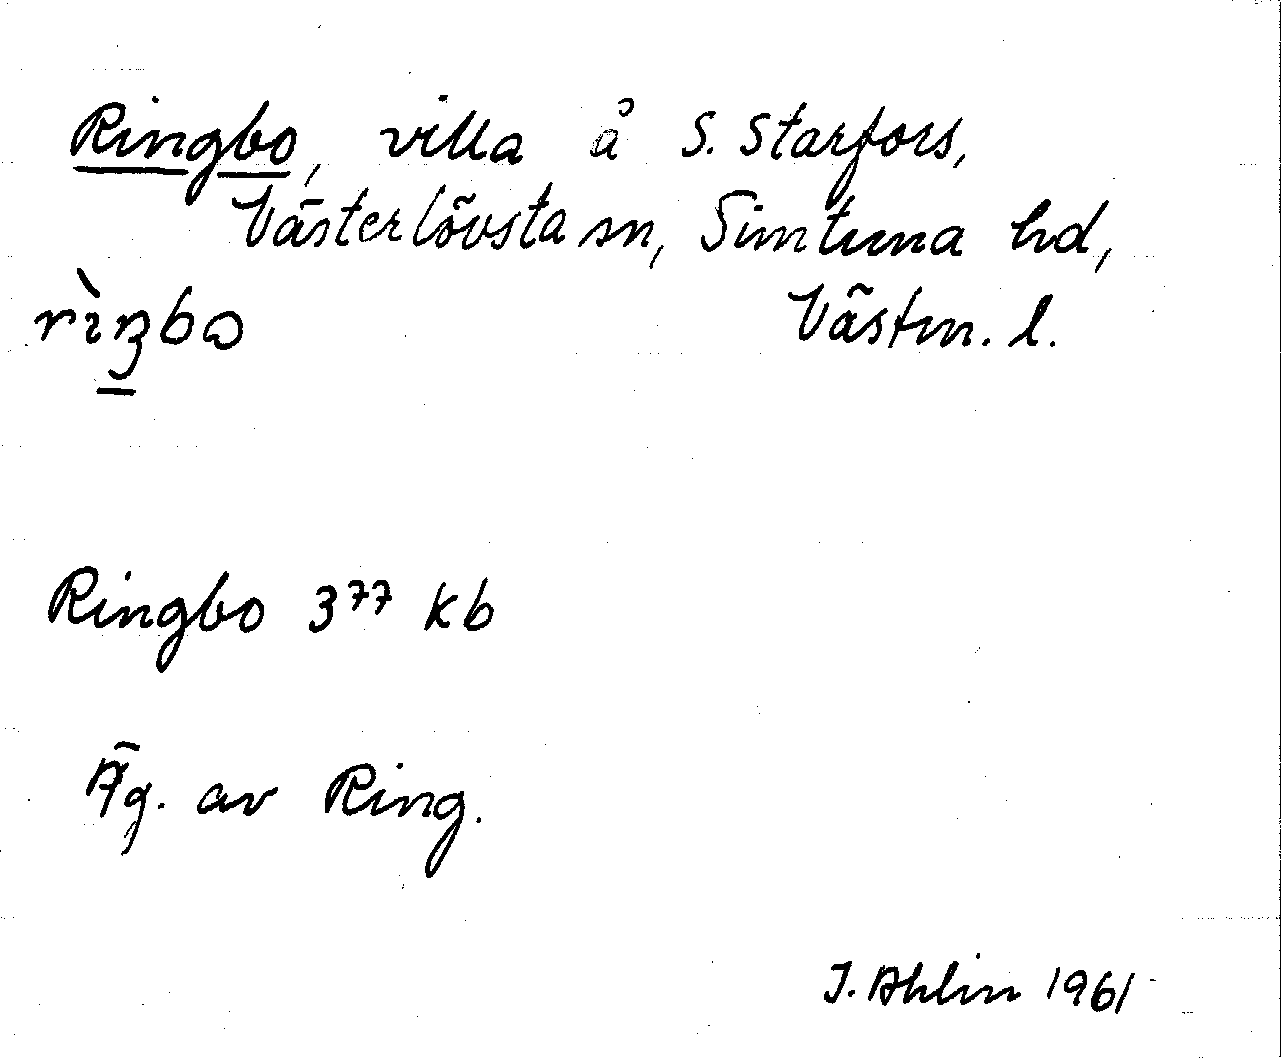 Ringbo, villa å S. Starfors,
Västerlövsta sn, Simtuna hd,
Västm. l.
rìŋbo
Ringbo 3⁷⁷ kb
Äg. av Ring.
J. Ahlin 1961